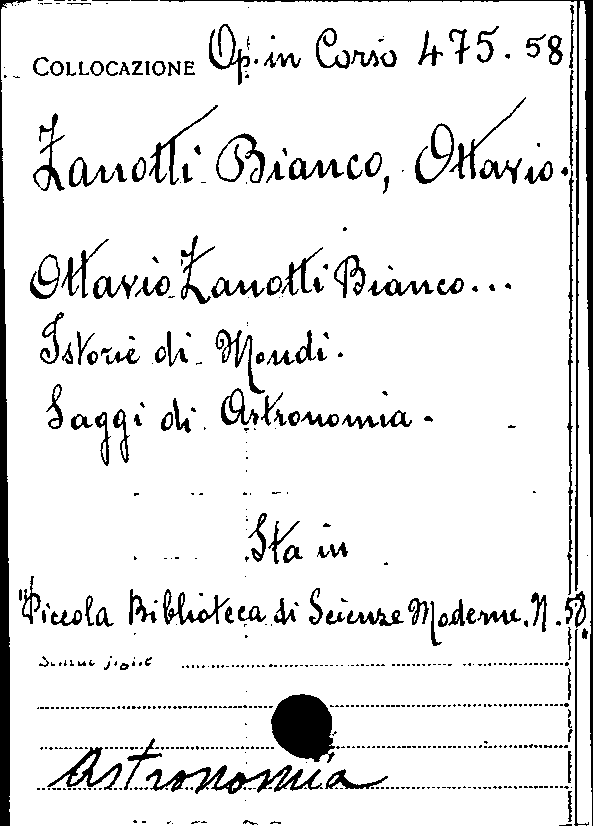 COLLOCAZIONE Op. in Corso 475. 58
Zanotti Bianco, Ottavio.
Ottavio Zanotti Bianco...
Istorie di Mondi.
Saggi di Astronomia.
Sta in
"Piccola Biblioteca di Scienze Moderne. N. 58.
Astronomia